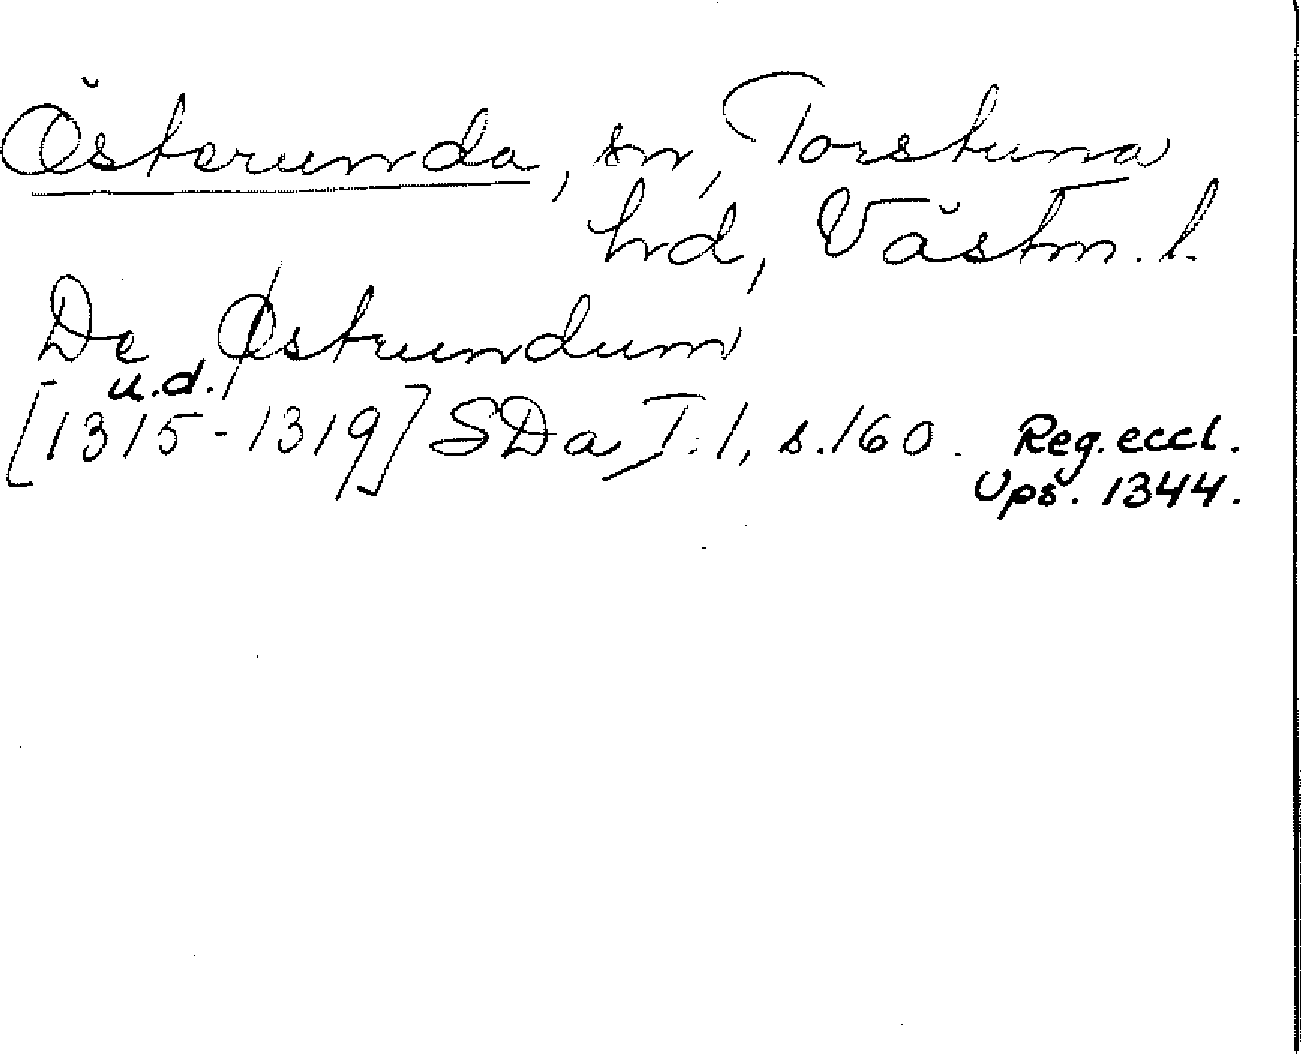 Österunda, sn, Torstuna
hd, Västm. l.
De Østrundum
u.d.
[1315-1319] SDa I:1, s.160. Reg.eccl.
Ups. 1344.